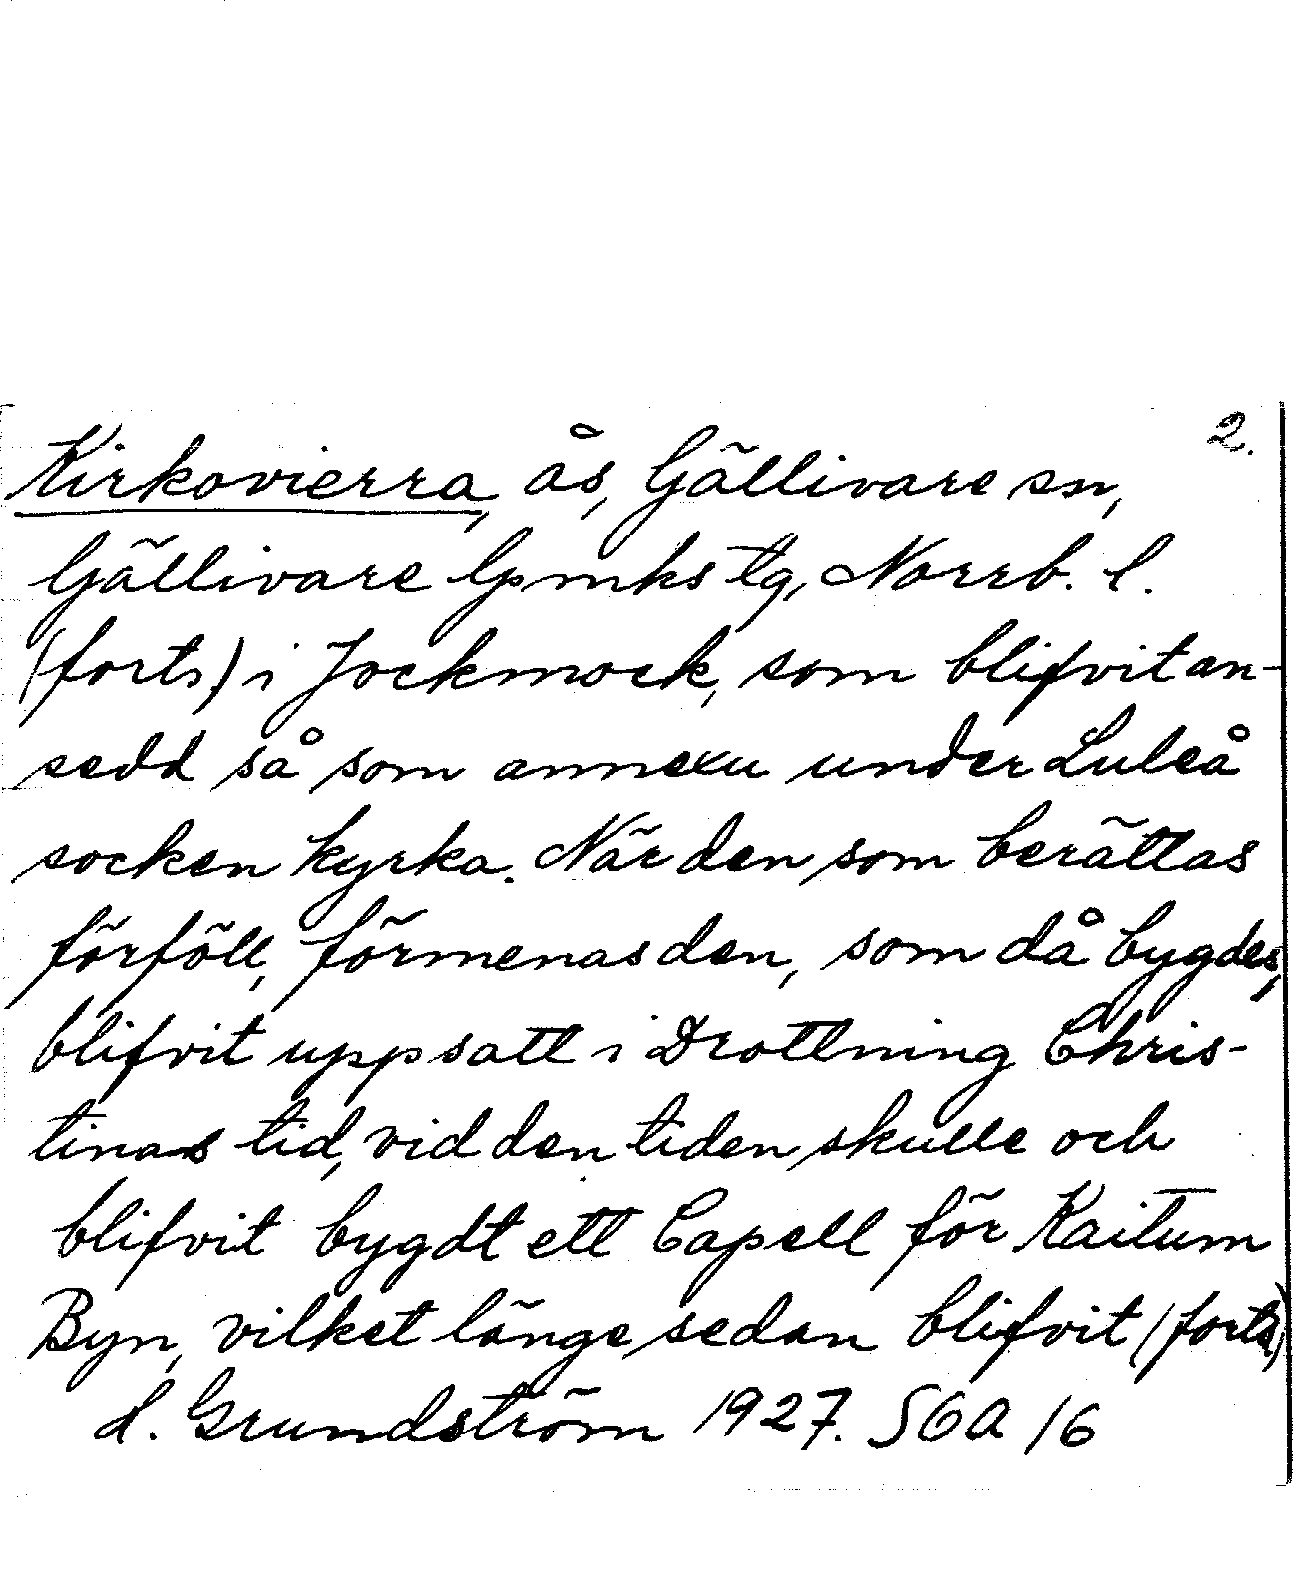 2.
Kirkovierra, ås, Gällivare sn,
Gällivare lpmks tg, Norrb. l.
(forts) i Jockmock, som blifvit an-
sedd så som annexu under Luleå
socken kyrka. När den som berättas
förföll, förmenas den, som då bygdes,
blifvit uppsatt i Drottning Chris-
tinas tid, vid den tiden skulle och
blifvit bygdt ett Capell för Kaitum
Byn, vilket länge sedan blifvit (forts)
H. Grundström 1927. SGA 16